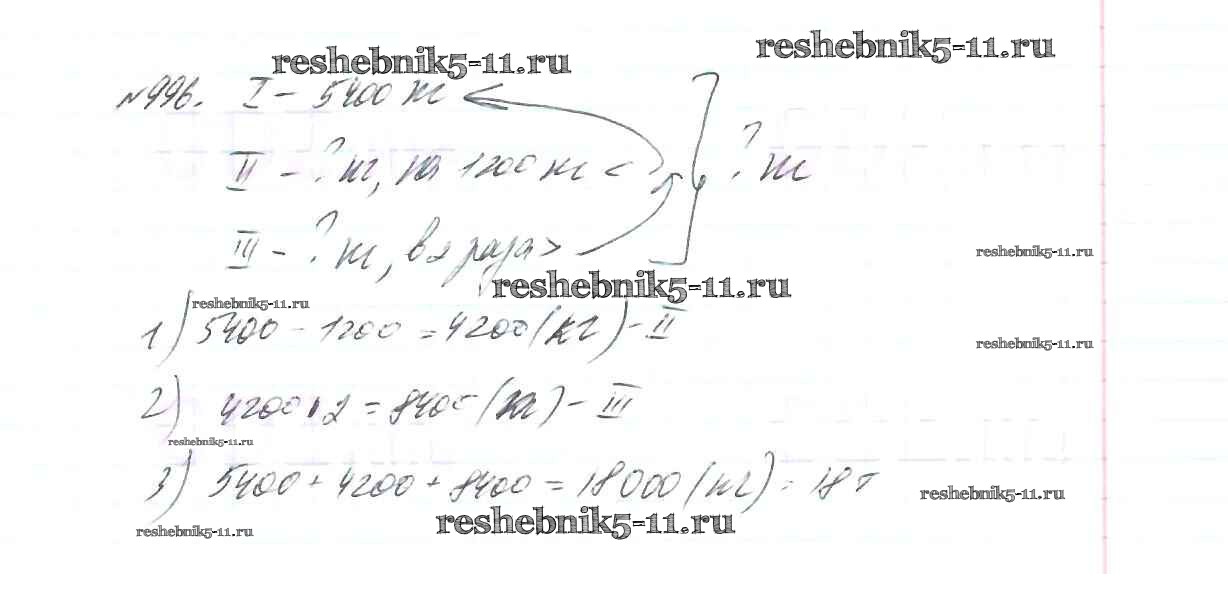 reshebnik5-11.ru
reshebnik5-11.ru
№996. I - 5400 кг
II - ? кг, на 1200 кг <
? кг
III - ? кг, в 2 раза >
reshebnik5-11.ru
reshebnik5-11.ru
reshebnik5-11.ru
1) 5400 - 1200 = 4200 (кг) - II
reshebnik5-11.ru
2) 4200 · 2 = 8400 (кг) - III
reshebnik5-11.ru
3) 5400 + 4200 + 8400 = 18000 (кг) = 18 т
reshebnik5-11.ru
reshebnik5-11.ru
reshebnik5-11.ru